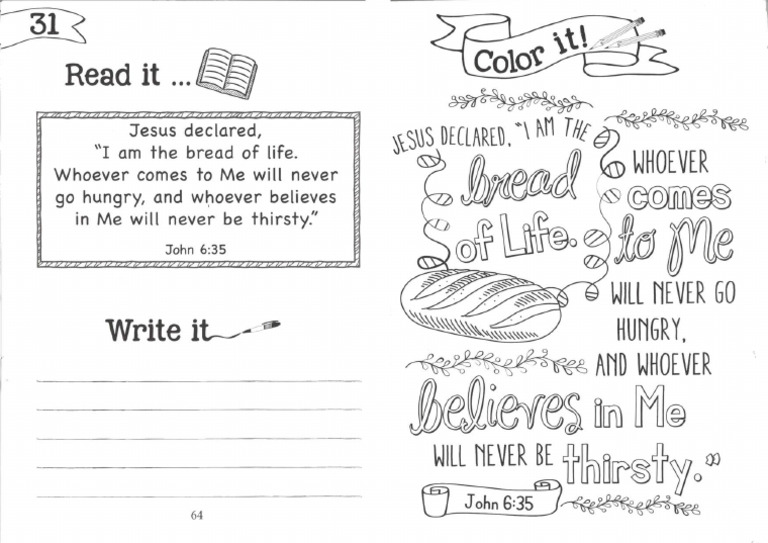 31
Read it ...
Jesus declared,
“I am the bread of life.
Whoever comes to Me will never
go hungry, and whoever believes
in Me will never be thirsty.”
John 6:35
Write it
64
Color it!
JESUS DECLARED, “I AM THE
bread
of Life.
WHOEVER
comes
to Me
WILL NEVER GO
HUNGRY,
AND WHOEVER
believes in Me
WILL NEVER BE thirsty.”
John 6:35